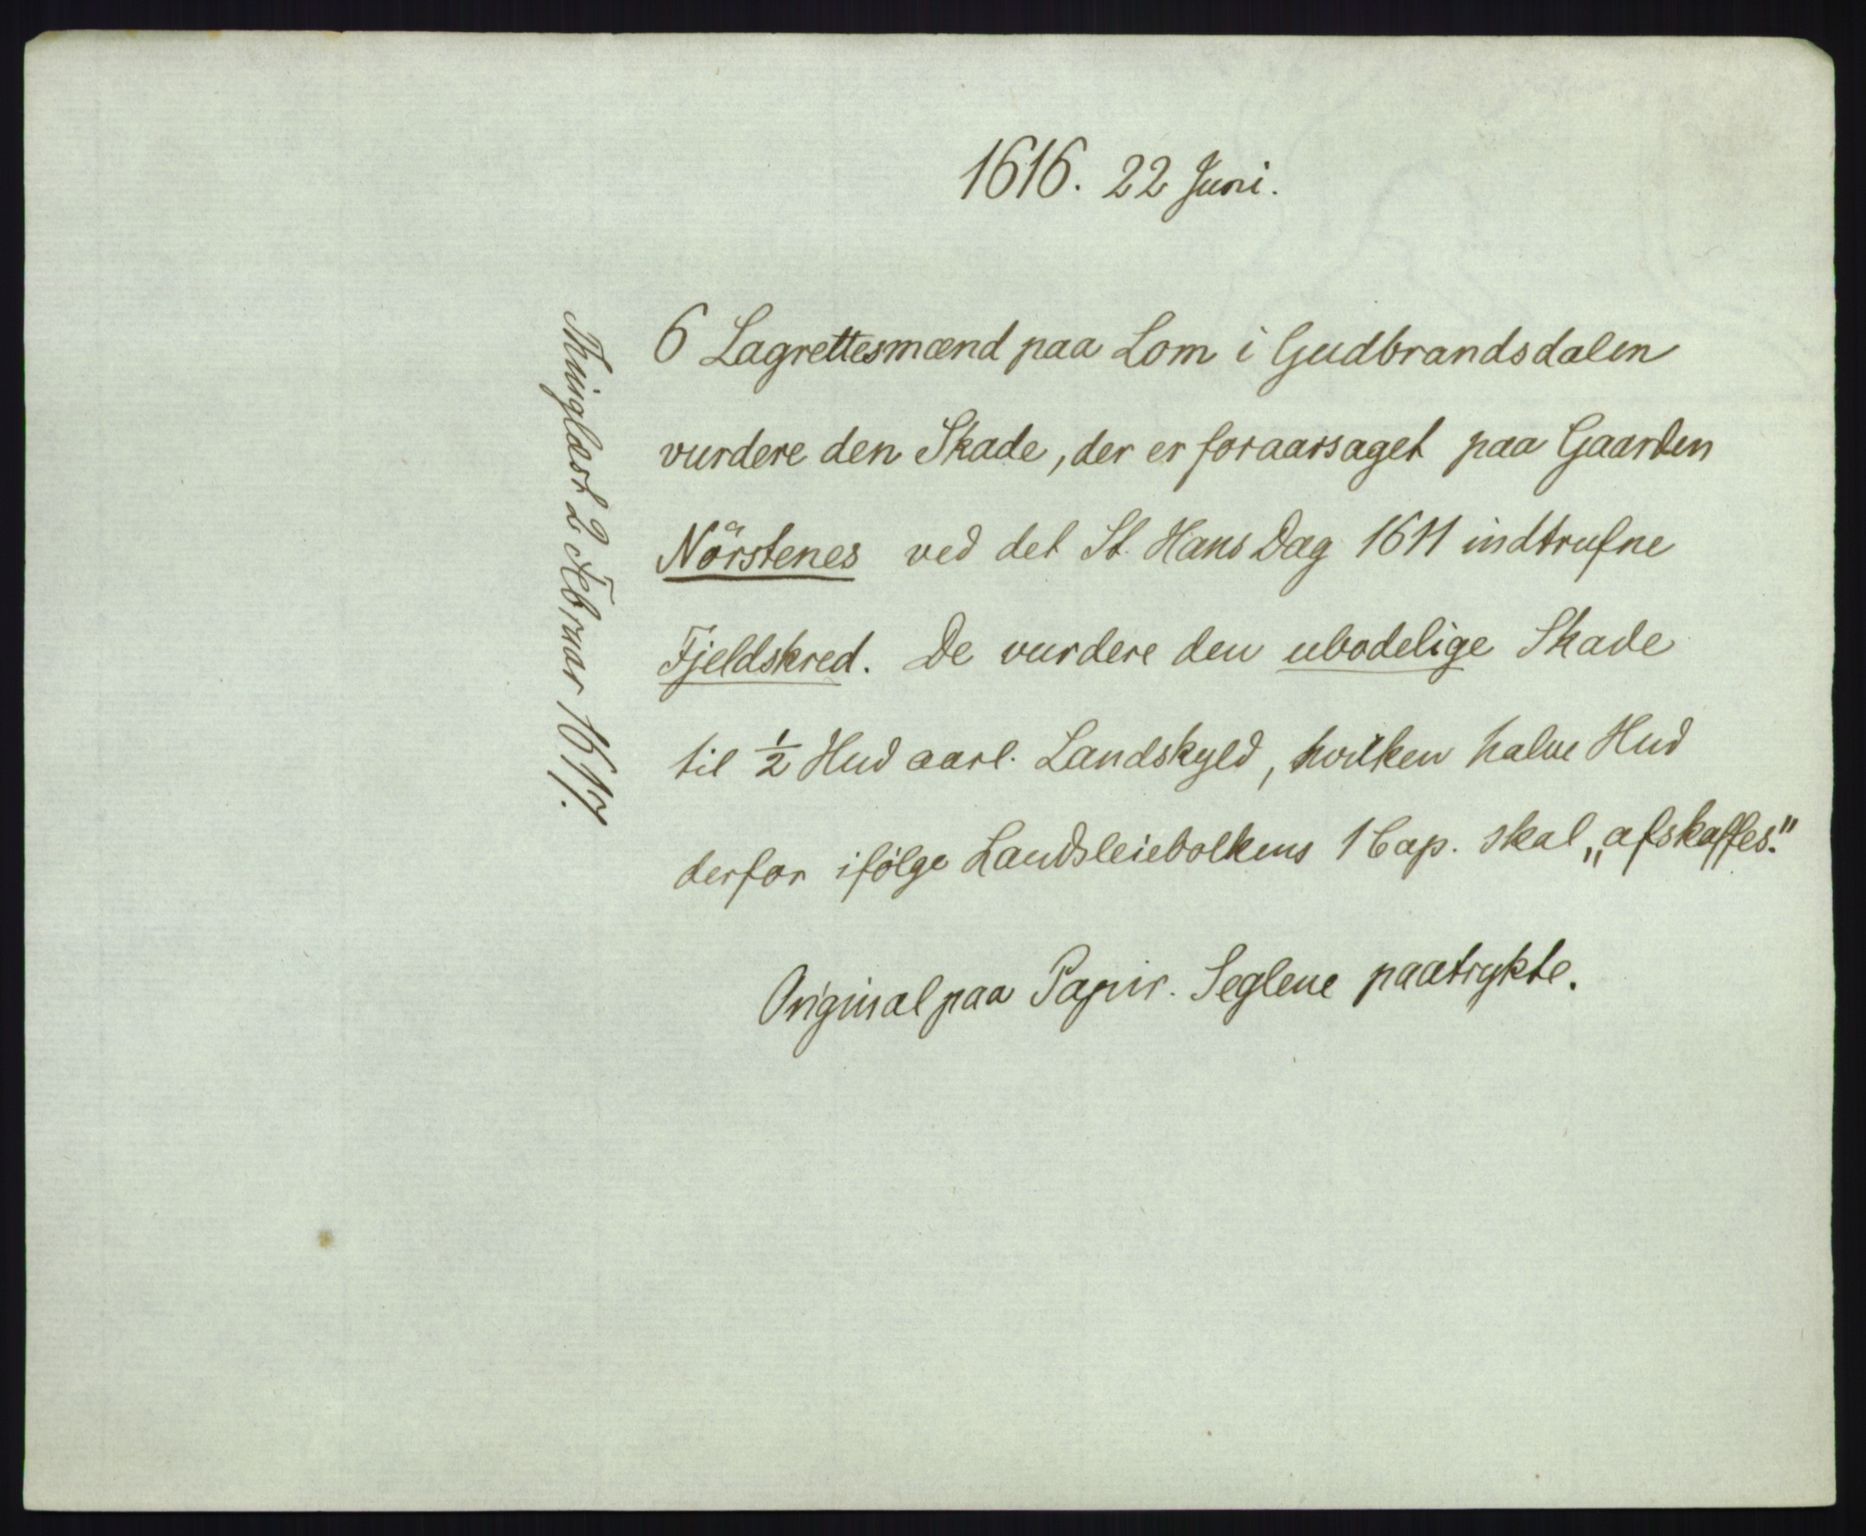 1616. 22 Juni.
6 Lagrettesmænd paa Lom i Gudbrandsdalen
vurdere den Skade, der er foraarsaget paa Gaarden
Nörstenes ved det St. Hans Dag 1611 indtrufne
Fjeldskred. De vurdere den ubodelige Skade
til ½ Hud aarl. Landskyld, hvilken halve Hud
derfor ifølge Landsleiebolkens 1 Cap. skal „afskaffes."
Original paa Papir. Seglene paatrykte.
Thinglæst 2 Februar 1617.